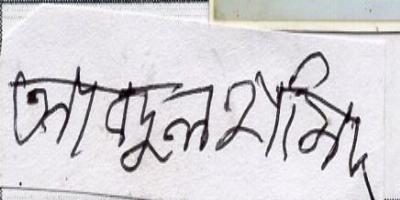 আবদুল হামিদ